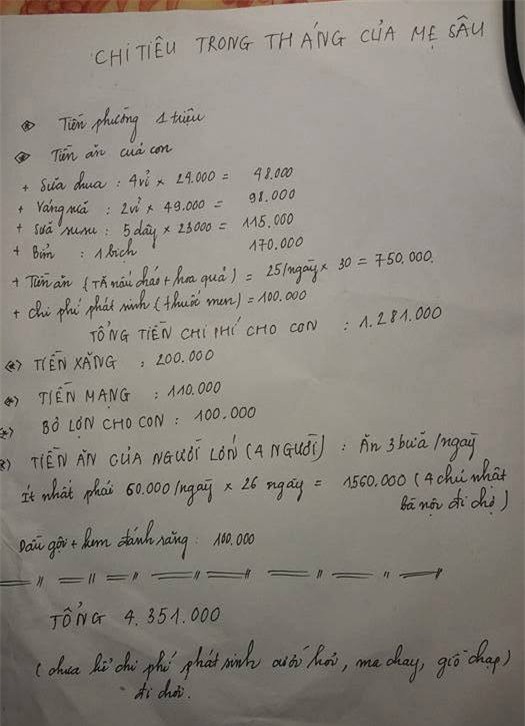 CHI TIÊU TRONG THÁNG CỦA MẸ SÂU
* Tiền phòng 1 triệu
* Tiền ăn của con
+ Sữa chua : 4 vỉ × 24.000 = 48.000
+ Váng sữa : 2 vỉ × 49.000 = 98.000
+ Sữa susu : 5 dây × 23000 = 115.000
+ Bỉm : 1 bịch 170.000
+ Tiền ăn (TĂ nấu cháo + hoa quả) = 25/ngày × 30 = 750.000.
+ Chi phí phát sinh (thuốc men) = 100.000
TỔNG TIỀN CHI PHÍ CHO CON : 1.281.000
(*) TIỀN XĂNG : 200.000
(*) TIỀN MẠNG : 110.000
(*) BỎ LỢN CHO CON : 100.000
(*) TIỀN ĂN CỦA NGƯỜI LỚN (4 NGƯỜI) : Ăn 3 bữa /ngày
Ít nhất phải 60.000/ngày × 26 ngày = 1560.000 (4 chủ nhật
bà nội đi chợ)
Dầu gội + kem đánh răng : 100.000
= " = " = " = " = " = " =
TỔNG 4.351.000
(chưa kể chi phí phát sinh cưới hỏi, ma chay, giỗ chạp)
đi chơi.